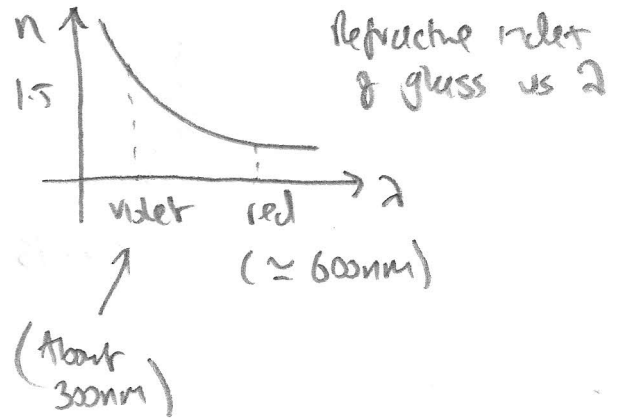 n
1.5
Refractive index
of glass vs λ
λ
violet
red
(≃ 600nm)
(About
300nm)